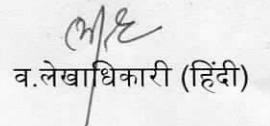 व.लेखाधिकारी (हिंदी)